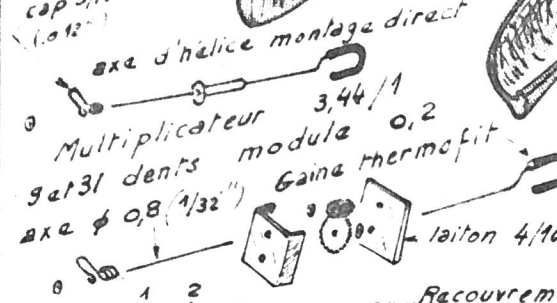 cap
(.012")
axe d'hélice montage direct
Multiplicateur 3,44/1
9 et 31 dents module 0,2
axe φ 0,8 (1/32") Gaine thermofit
laiton 4/10
1 2
Recouvrem